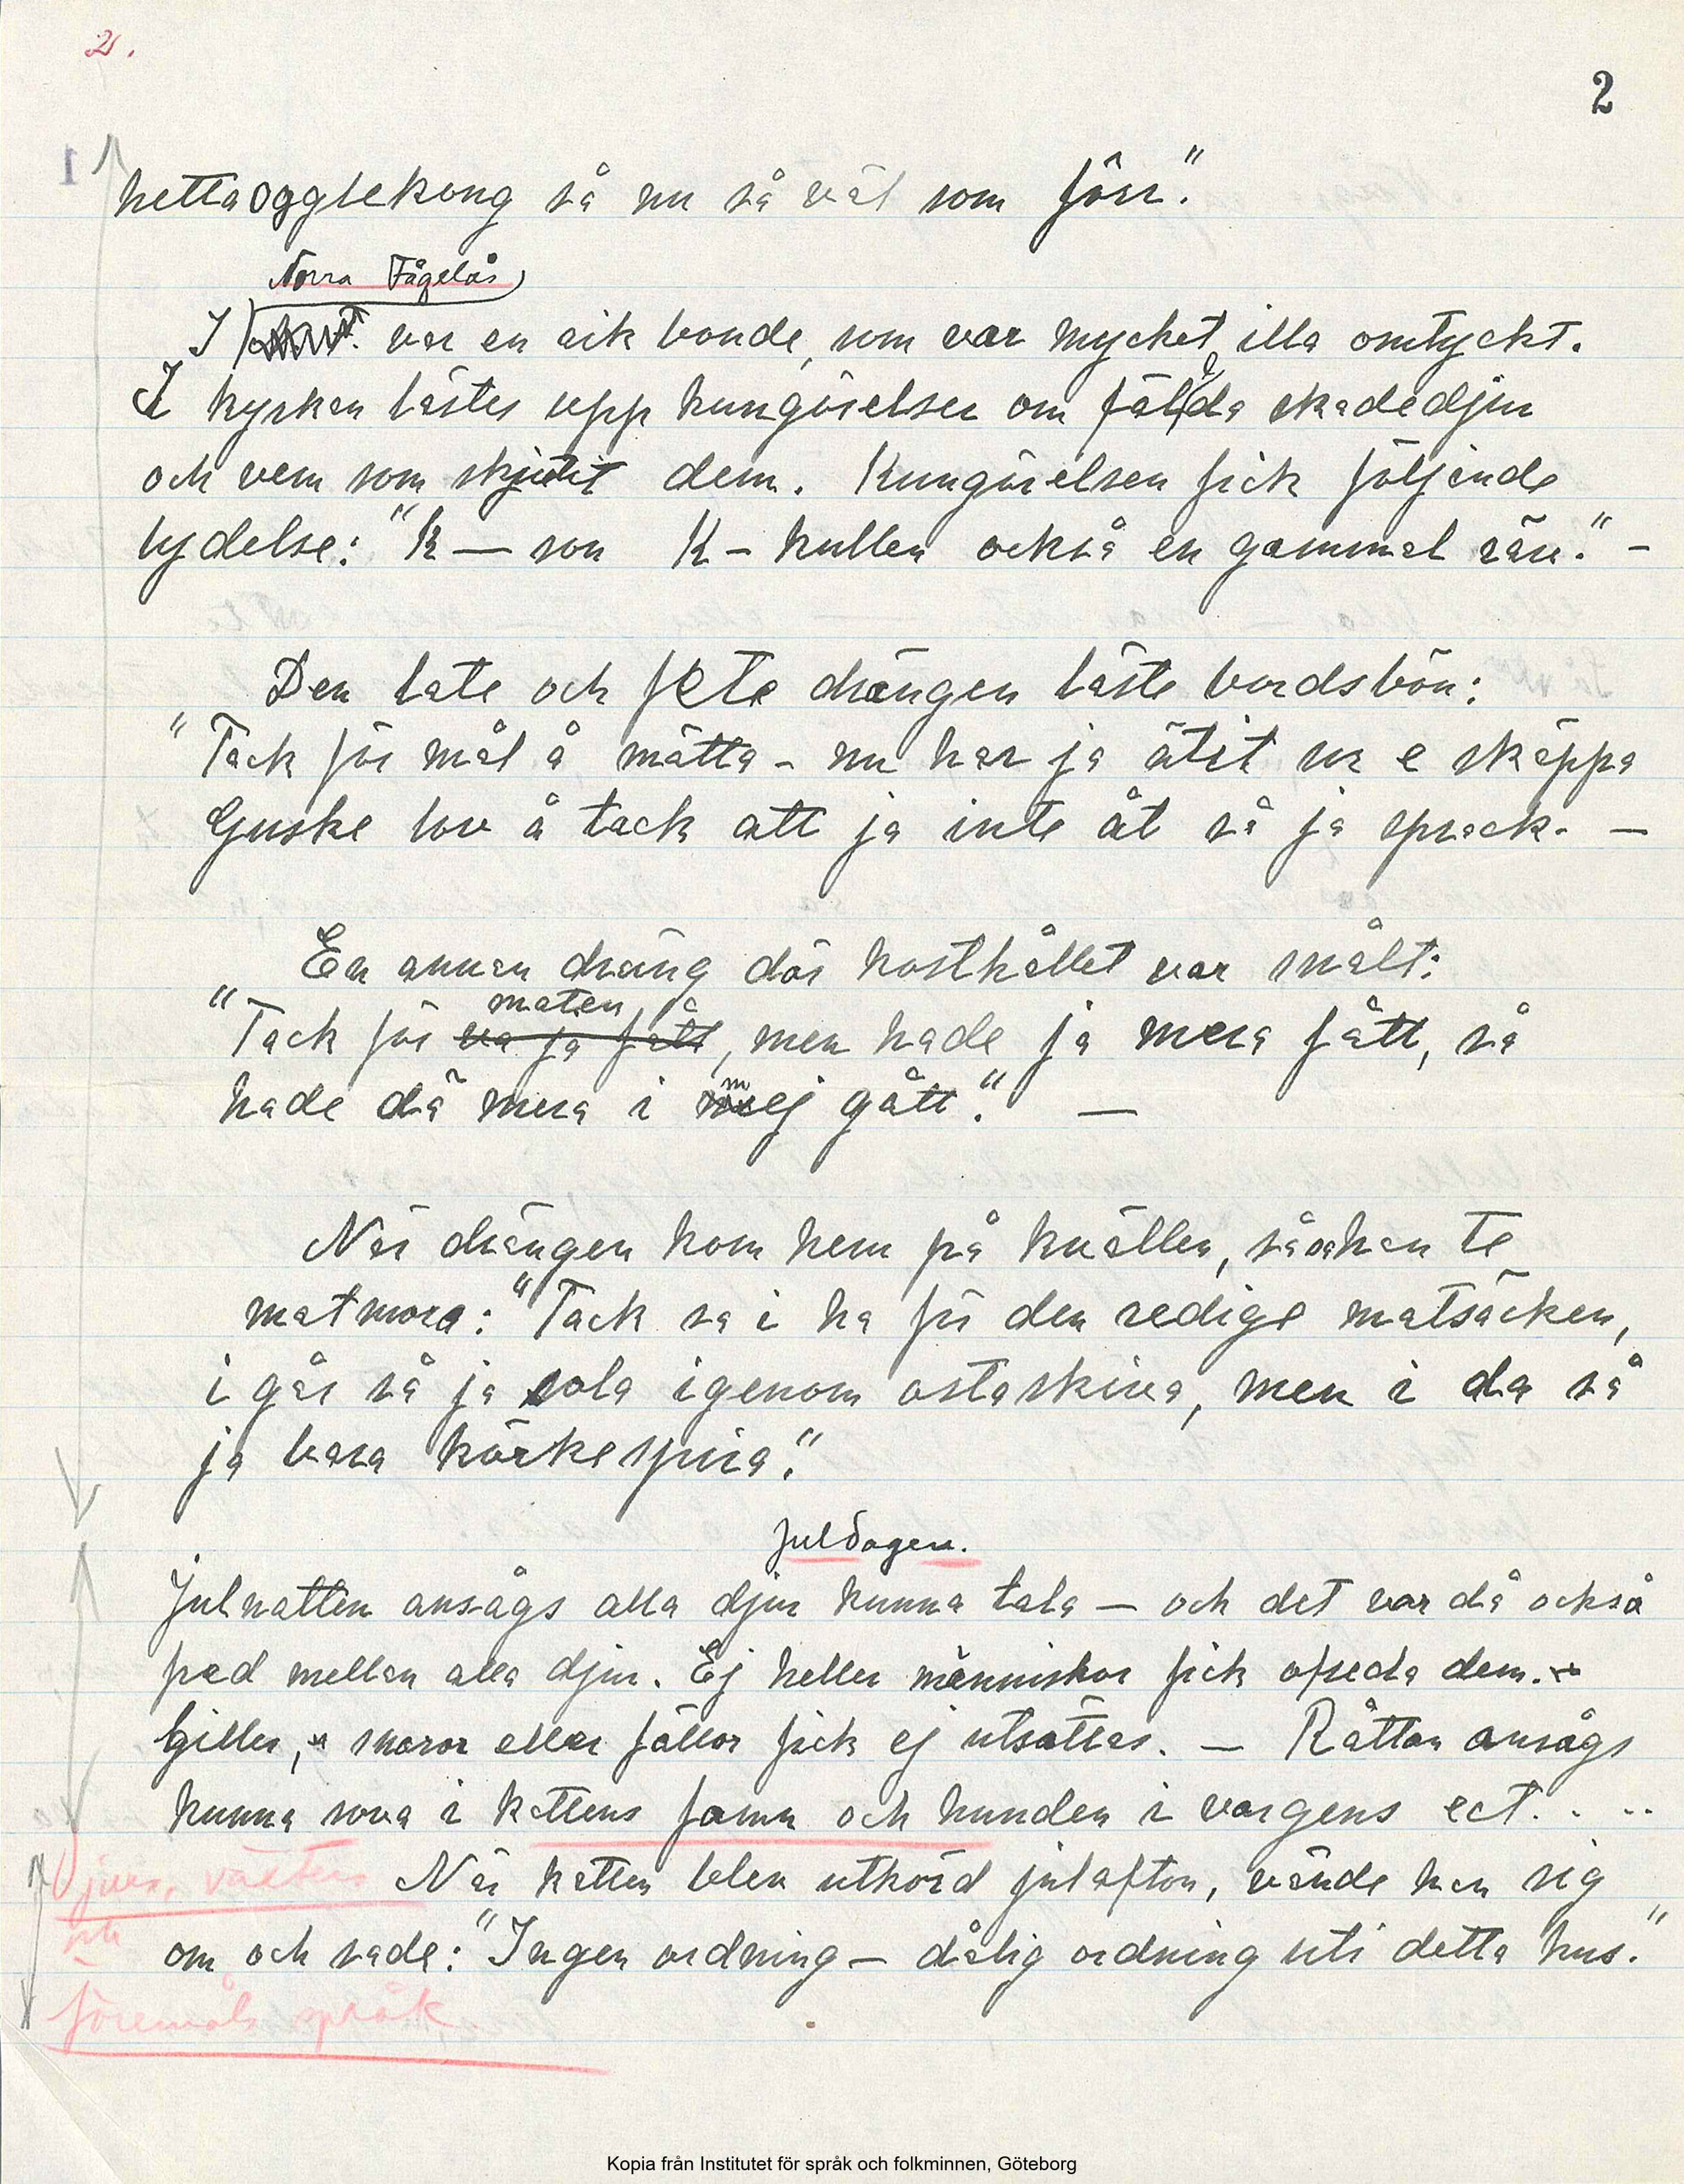 2.
2
hetta ogglekong så nu så väl som förr."
Norra Fågelås
I var en rik bonde, som var mycket illa omtyckt.
I kyrkan lästes upp kungörelser om fällda skadedjur
och vem som skjutit dem. Kungörelsen fick följande
lydelse: "K — son K - kullen också en gammal räv." -
Den late och fete drängen läste bordsbön:
"Tack för mål å mätta - nu har ja ätit ur e skäppa
Guske lov å tack att ja inte åt så ja sprack. —
En annan dräng där kosthållet var snålt:
"Tack för va ja fått maten, men hade ja mera fått, så
hade dä mera i mej gått." —
När drängen kom hem på kvällen, sa han te
matmora: "Tack sa i ha för den redige matsäcken,
i går så ja sola igenom ostaskiva, men i da så
ja bara körkespira."
Juldagen.
Julnatten ansågs alla djur kunna tala — och det var då också
fred mellan alla djur. Ej heller människor fick ofreda dem.
Giller, snaror eller fällor fick ej utsättas. — Råttan ansågs
kunna sova i kattens famn och hunden i vargens ect. . ..
Djurs, växters När katten blev utkörd julafton, vände han sig
och
om och sade: "Ingen ordning — dålig ordning uti detta hus."
föremåls språk
Kopia från Institutet för språk och folkminnen, Göteborg